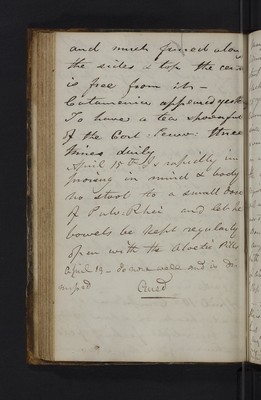 and much furred along
the sides & top the cen
is free from it –
Catamenia appeared yest
To have a tea spoonful
of the Cort. Peruv. three
times daily
April 15th Is rapidly im
proving in mind & body
no stool to a small dose
of Pulv. Rhei and let her
bowels be kept regularly
open with the Aloetic Pills
April 13 – is well and is
Cured